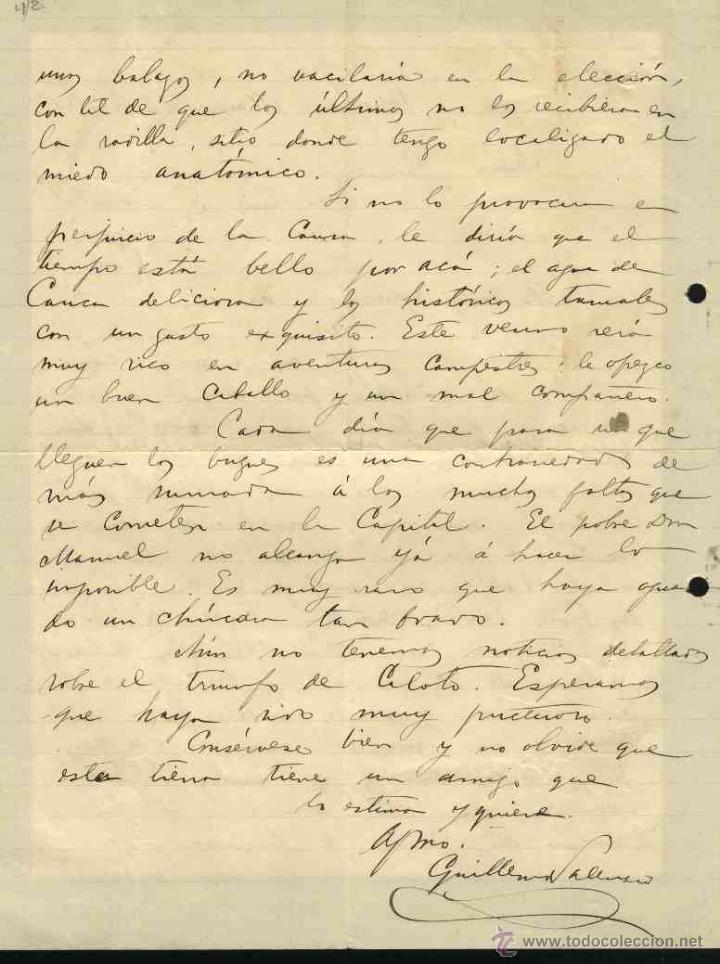 4/2
unos balazos, no vacilaría en la elección,
con tal de que los últimos no los recibiera en
la rodilla, sitio donde tengo localizado el
miedo anatómico.
Si no lo provocara en
perjuicio de la Causa, le diría que el
tiempo está bello por acá; el agua de
Cauca deliciosa y los históricos tamales
con un gusto exquisito. Este verano será
muy rico en aventuras campestres: le ofrezco
un buen caballo y un mal compañero.
Cada día que pasa sin que
lleguen los buques es una contrariedad de
más sumada á las muchas faltas que
se cometen en la Capital. El pobre Don
Manuel no alcanza yá á hacer lo
imposible. Es muy raro que haya
do un chúcaro tan bravo.
Aún no tenemos noticias detalladas
sobre el triunfo de Caloto. Esperamos
que haya sido muy fructuoso.
Consérvese bien y no olvide que
esta tierra tiene un amigo que
lo estima y quiere.
Afmo.
Guillermo Valencia
www.todocoleccion.net